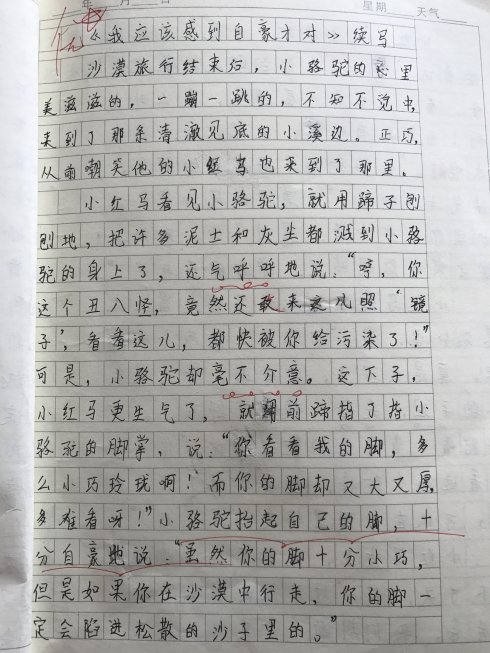 年 月 日 星期 天气
优
《我应该感到自豪才对》续写
沙漠旅行结束后，小骆驼的心里
美滋滋的，一蹦一跳的，不知不觉中，
来到了那条清澈见底的小溪边。正巧，
从前嘲笑他的小红马也来到了那里。
小红马看见小骆驼，就用蹄子刨
刨地，把许多泥土和灰尘都溅到小骆
驼的身上了，还气呼呼地说：“哼，你
这个丑八怪，竟然还敢来这儿照‘镜
子’，看看这儿，都快被你给污染了！”
可是，小骆驼却毫不介意。这下子，
小红马更生气了，就用前蹄指了指小
骆驼的脚掌，说：“你看看我的脚，多
么小巧玲珑啊！而你的脚却又大又厚，
多难看呀！”小骆驼抬起自己的脚，十
分自豪地说：“虽然你的脚十分小巧，
但是如果你在沙漠中行走，你的脚一
定会陷进松散的沙子里的。”